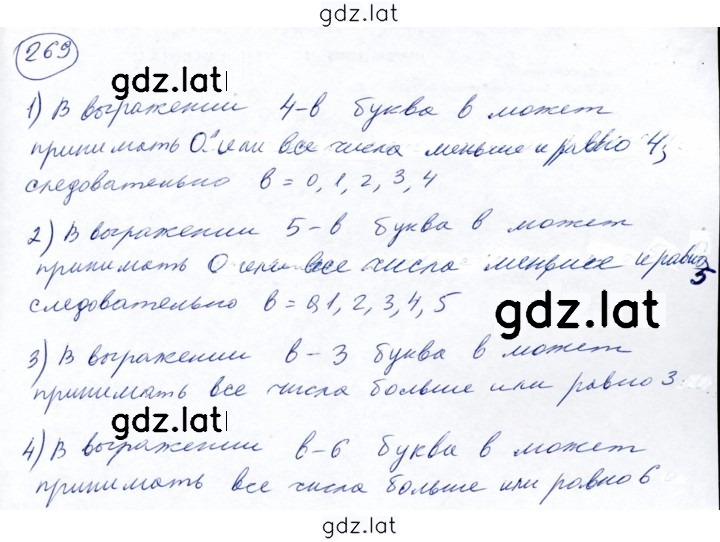 gdz.lat
269
gdz.lat
1) В выражении 4-в буква в может
принимать 0 или все числа меньше и равно 4,
следовательно в = 0, 1, 2, 3, 4
2) В выражении 5-в буква в может
принимать 0 или все числа меньше и равно 5
следовательно в = 0, 1, 2, 3, 4, 5
gdz.lat
3) В выражении в-3 буква в может
принимать все числа больше или равно 3
gdz.lat
4) В выражении в-6 буква в может
принимать все числа больше или равно 6
gdz.lat